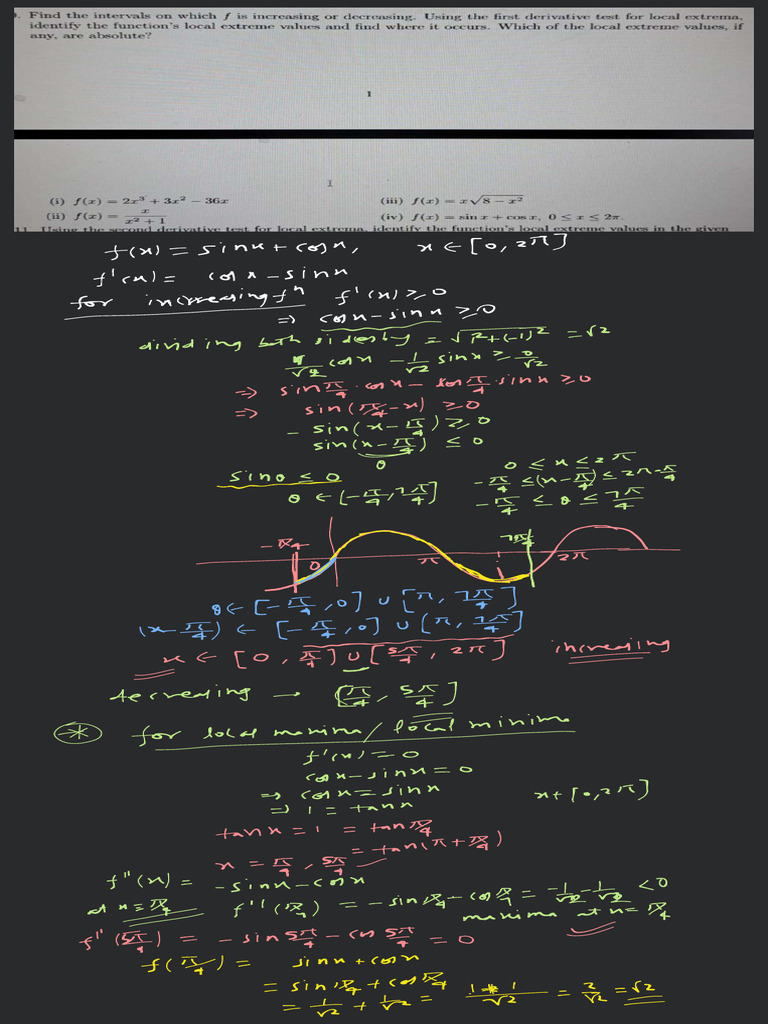 . Find the intervals on which f is increasing or decreasing. Using the first derivative test for local extrema,
identify the function's local extreme values and find where it occurs. Which of the local extreme values, if
any, are absolute?
1
1
(i) f(x) = 2x³ + 3x² − 36x
(iii) f(x) = x√(8 − x²)
(ii) f(x) = x/(x² + 1)
(iv) f(x) = sin x + cos x, 0 ≤ x ≤ 2π.
11. Using the second derivative test for local extrema, identify the function's local extreme values in the given
f(x) = sinx + cosx, x ∈ [0, 2π]
f'(x) = cosx − sinx
for increasing fⁿ f'(x) ≥ 0
⇒ cosx − sinx ≥ 0
dividing both sides by = √(1²+(-1)²) = √2
1/√2 cosx − 1/√2 sinx ≥ 0/√2
⇒ sin π/4 · cosx − cos π/4 · sinx ≥ 0
⇒ sin(π/4 − x) ≥ 0
− sin(x − π/4) ≥ 0
sin(x − π/4) ≤ 0
θ
0 ≤ x ≤ 2π
sinθ ≤ 0
−π/4 ≤ (x − π/4) ≤ 2π − π/4
θ ∈ [−π/4, 7π/4]
−π/4 ≤ θ ≤ 7π/4
−π/4 0 π 7π/4 2π
θ ∈ [−π/4, 0] ∪ [π, 7π/4]
(x − π/4) ∈ [−π/4, 0] ∪ [π, 7π/4]
x ∈ [0, π/4] ∪ [5π/4, 2π] increasing
decreasing → [π/4, 5π/4]
* for local maxima / local minima
f'(x) = 0
cosx − sinx = 0
⇒ cosx = sinx
x ∈ [0, 2π]
⇒ 1 = tanx
tanx = 1 = tan π/4
= tan(π + π/4)
x = π/4, 5π/4
f''(x) = −sinx − cosx
at x = π/4 f''(π/4) = −sin π/4 − cos π/4 = −1/√2 − 1/√2 < 0
maxima at x = π/4
f''(5π/4) = −sin 5π/4 − cos 5π/4 = 0
f(π/4) = sinx + cosx
= sin π/4 + cos π/4
= 1/√2 + 1/√2 = 1+1/√2 = 2/√2 = √2